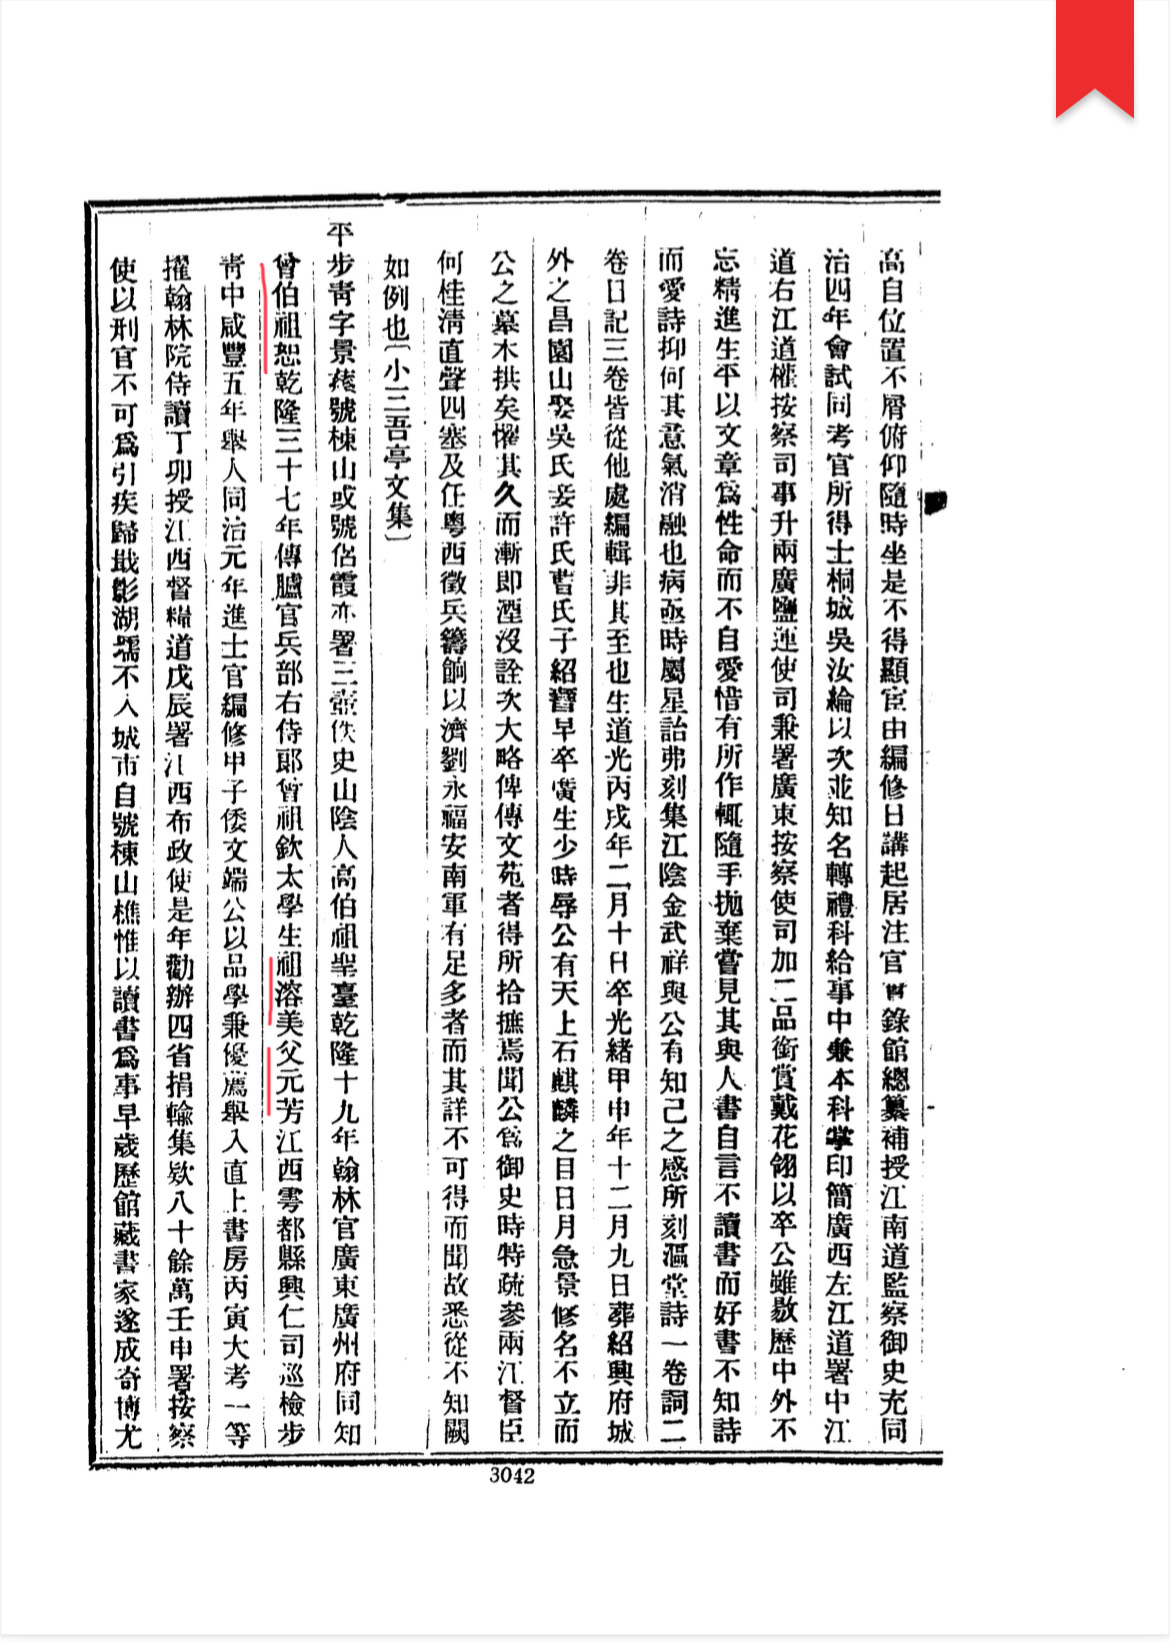 高自位置不屑俯仰隨時坐是不得顯宦由編修日講起居注官錄館總纂補授江南道監察御史充同
治四年會試同考官所得士桐城吳汝綸以次並知名轉禮科給事中兼本科掌印簡廣西左江道署中江
道右江道權按察司事升兩廣鹽運使司兼署廣東按察使司加二品銜賞戴花翎以卒公雖敭歷中外不
忘精進生平以文章為性命而不自愛惜有所作輒隨手拋棄嘗見其與人書自言不讀書而好書不知詩
而愛詩抑何其意氣消融也病亟時屬星詒弗刻集江陰金武祥與公有知己之感所刻漚堂詩一卷詞二
卷日記三卷皆從他處編輯非其至也生道光丙戌年二月十日卒光緒甲申年十二月九日葬紹興府城
外之昌園山娶吳氏妾許氏曹氏子紹早卒生少時辱公有天上石麒麟之目日月急景修名不立而
公之墓木拱矣懼其久而漸即湮沒詮次大略俾傳文苑者得所拾摭焉聞公為御史時特疏參兩江督臣
何桂清直聲四塞及任粵西徵兵籌餉以濟劉永福安南軍有足多者而其詳不可得而聞故悉從不知闕
如例也〔小三吾亭文集〕
平步青字景蓀號棟山或號侶霞亦署三壺佚史山陰人高伯祖聖臺乾隆十九年翰林官廣東廣州府同知
曾伯祖恕乾隆三十七年傳臚官兵部右侍郎曾祖欽太學生祖溶美父元芳江西雩都縣興仁司巡檢步
青中咸豐五年舉人同治元年進士官編修甲子倭文端公以品學兼優薦舉入直上書房丙寅大考一等
擢翰林院侍讀丁卯授江西督糧道戊辰署江西布政使是年勸辦四省捐輸集欵八十餘萬壬申署按察
使以刑官不可為引疾歸戢影湖壖不入城市自號棟山樵惟以讀書為事早歲歷館藏書家遂成奇博尤
3042